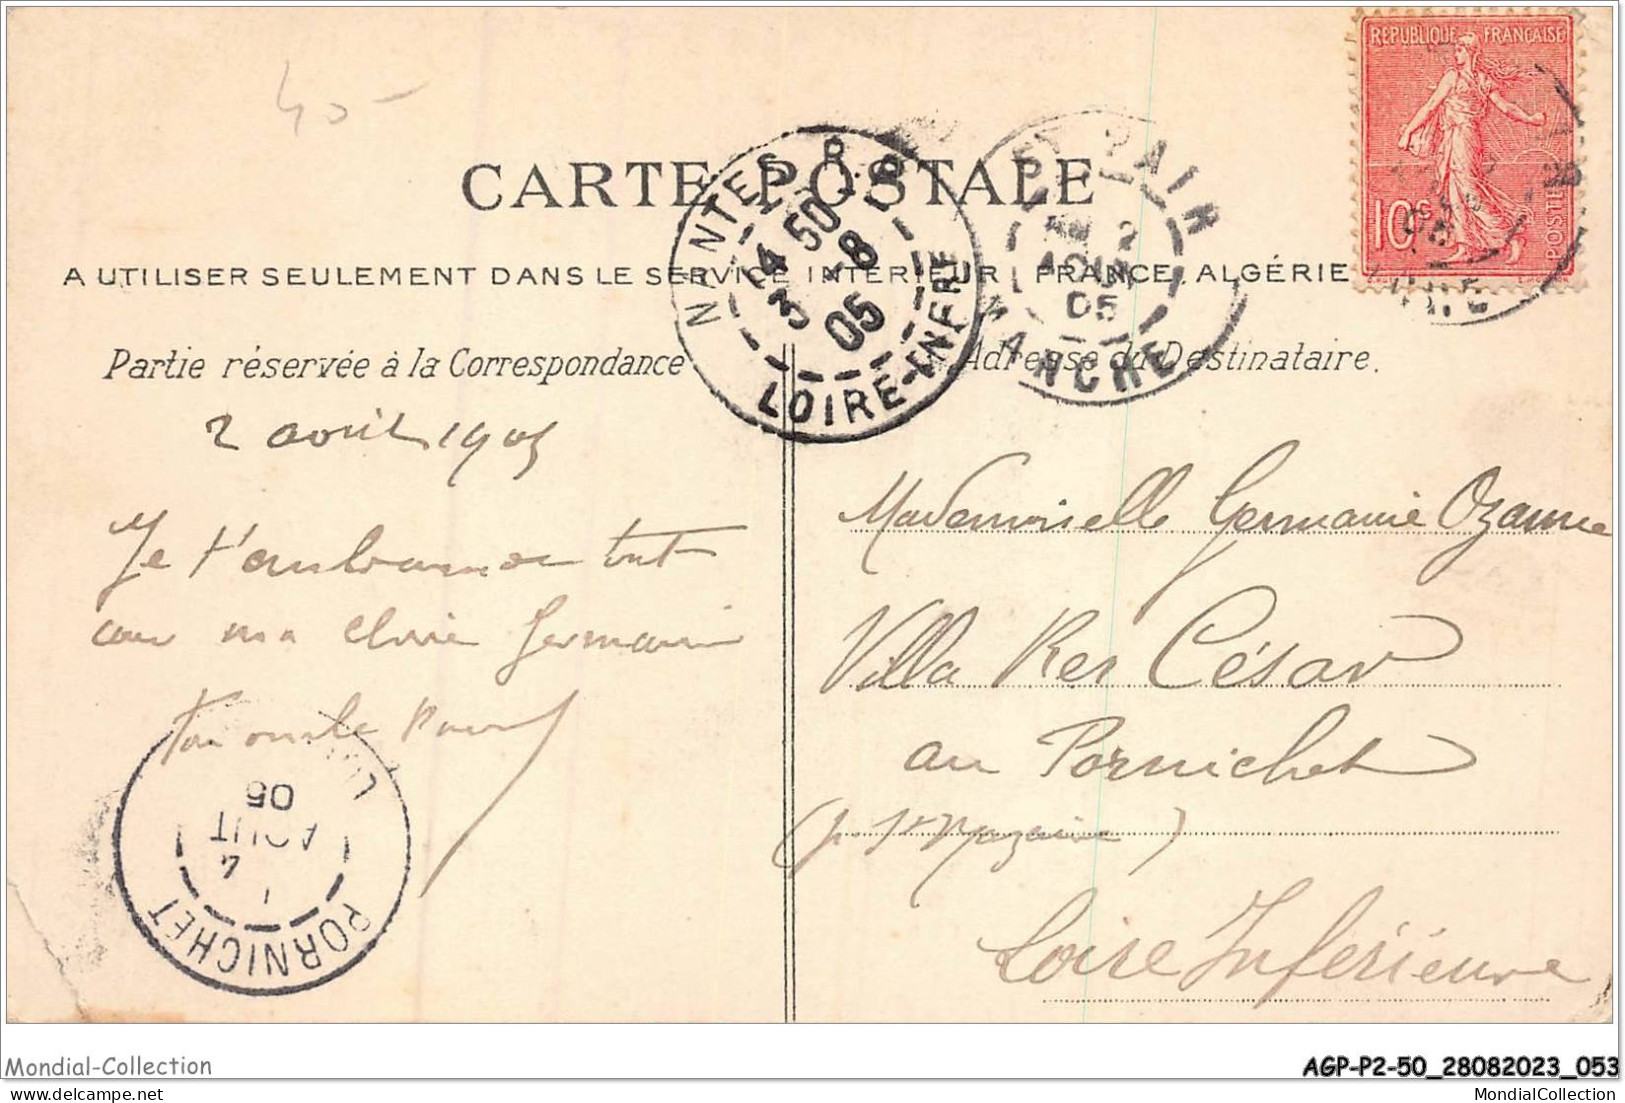 40-
RÉPUBLIQUE FRANÇAISE
10c
POSTES
CARTE POSTALE
A UTILISER SEULEMENT DANS LE SERVICE INTÉRIEUR, FRANCE, ALGÉRIE
NANTES R.P.
14 50
3 -8
05
LOIRE-INFRE
ST PAIR
2
AOUT
05
MANCHE
Partie réservée à la Correspondance
Adresse du Destinataire.
2 août 1905
Je t'embrasse de tout
cœur ma chère Germaine
Ton oncle
Mademoiselle Germaine Ozanne
Villa Res César
au Pornichet
(p. St Nazaire)
Loire Inférieure
PORNICHET
4
AOUT
05
Mondial-Collection
AGP-P2-50_28082023_053
www.delcampe.net
MondialCollection